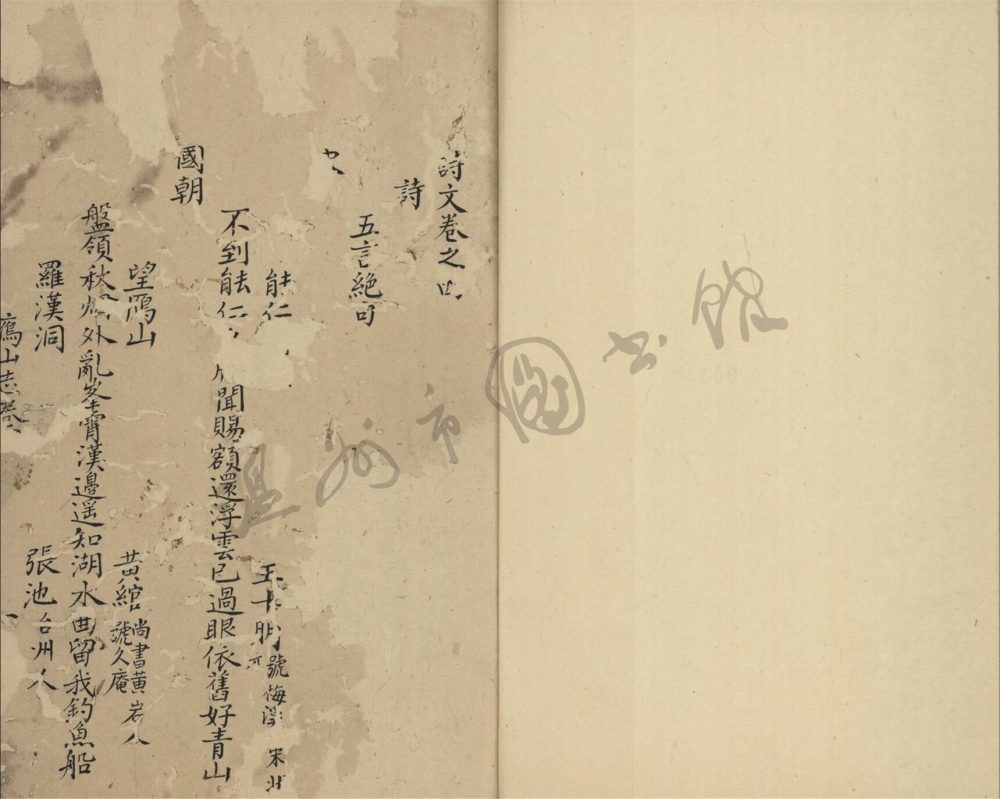 詩文卷之
詩
五言絕句
能仁
王十朋 號梅溪 宋
不到能仁 聞賜額還浮雲已過眼依舊好青山
國朝
望鴈山
黃綰 尚書黃岩人 號久庵
盤領秋 外亂峯霄漢邊遥知湖水曲留我釣魚船
羅漢洞
張池 台州人
鴈山志
溫州市圖書館